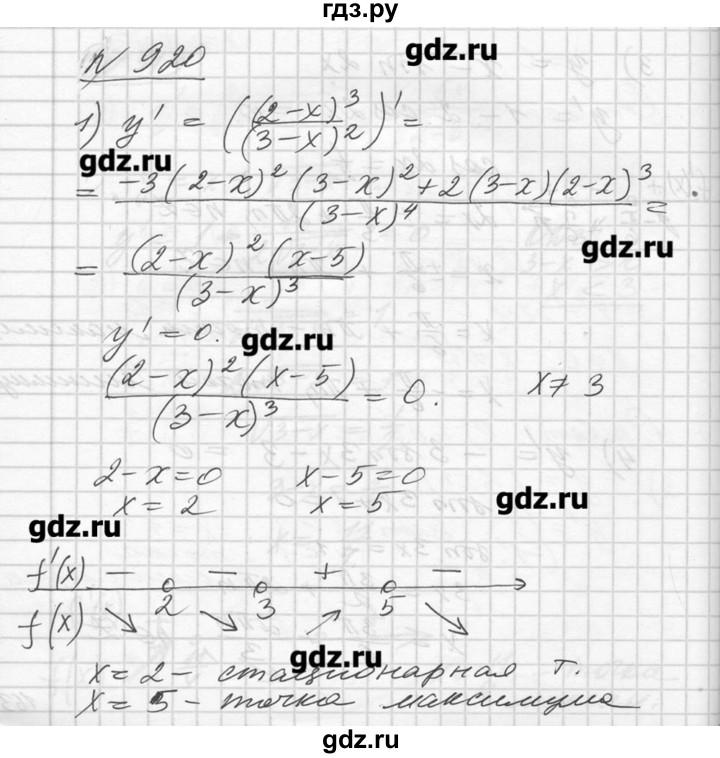 гдз.ру
gdz.ru
N 920
1) y' = ((2-x)^3/(3-x)^2)' =
gdz.ru
= -3(2-x)^2(3-x)^2+2(3-x)(2-x)^3/(3-x)^4 =
gdz.ru
= (2-x)^2(x-5)/(3-x)^3
y' = 0.
gdz.ru
(2-x)^2(x-5)/(3-x)^3 = 0. x≠3
2-x=0 x-5=0
x = 2 x=5
gdz.ru
gdz.ru
f'(x) - - + -
2 3 5
f(x) ↘ ↘ ↗ ↘
gdz.ru
x=2- стационарная т.
x=5-точка максимума
gdz.ru